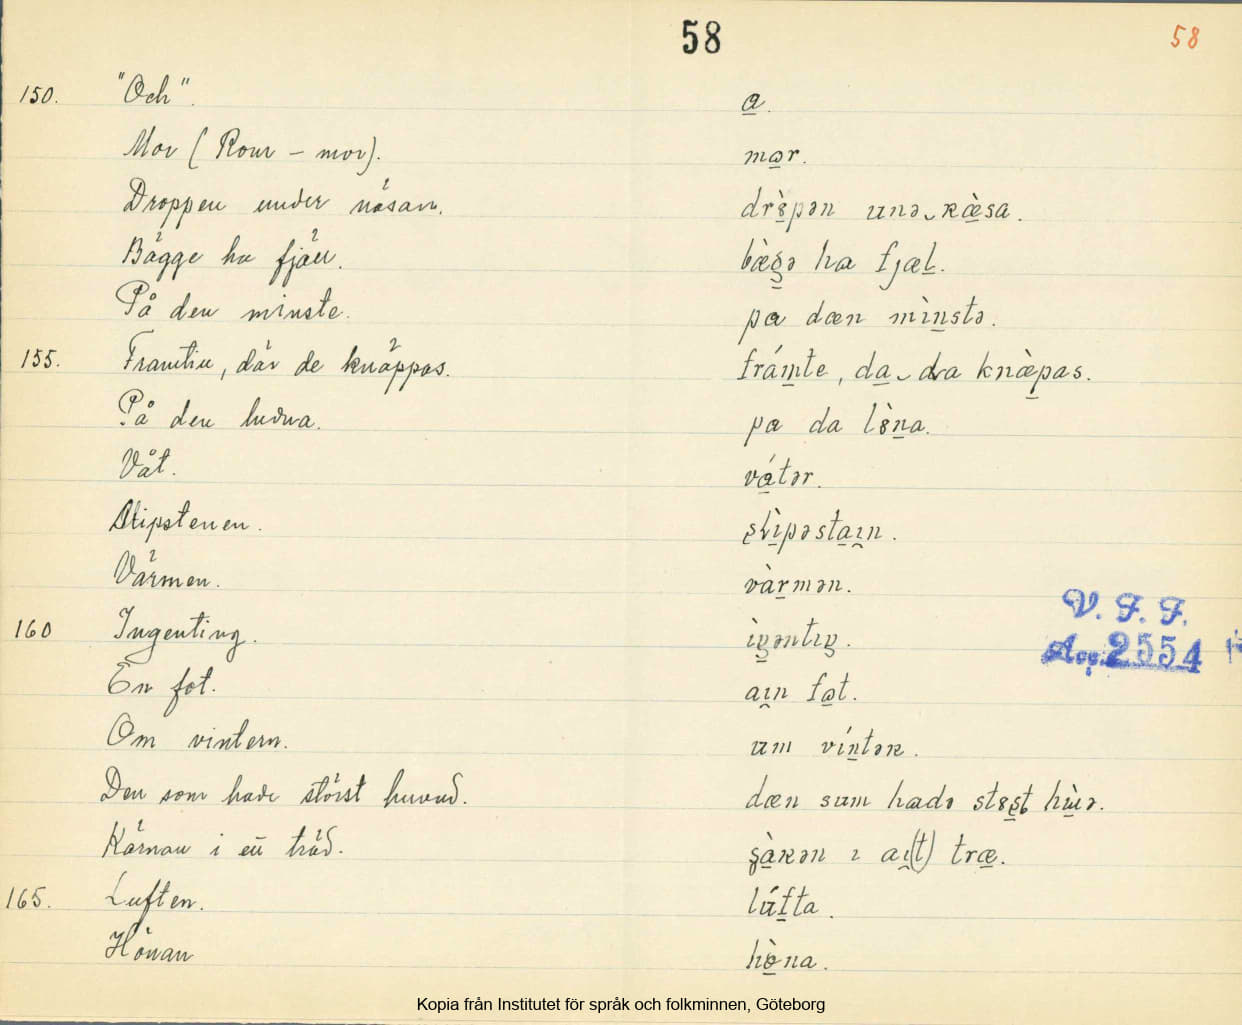 58 58
150. "Och". a.
Mor (Rour – mor). mar.
Droppen under näsan. drɞ̀pən unə‿næ̀sa.
Bägge ha fjäll. bæ̀gə ha fjæl.
På den minste. pa dæn mìnstə.
155. Framtill, där de knäppas. frámte, da‿dra knæ̀pas.
På den ludna. pa da lɞ̀na.
Våt. vátər.
Slipstenen. slìpəstaɪn.
Värmen. vàrmən.
160 Ingenting. ìŋəntɪŋ.
En fot. aɪn fat.
Om vintern. um víntəʀ.
Den som hade störst huvud. dæn sum hadə stɞst hùə.
Kärnan i ett träd. ɕàʀən ɪ aɪ(t) træ.
165. Luften. lúfta.
Hönan hɵ̀na.
V. F. F.
Acc. 2554
Kopia från Institutet för språk och folkminnen, Göteborg